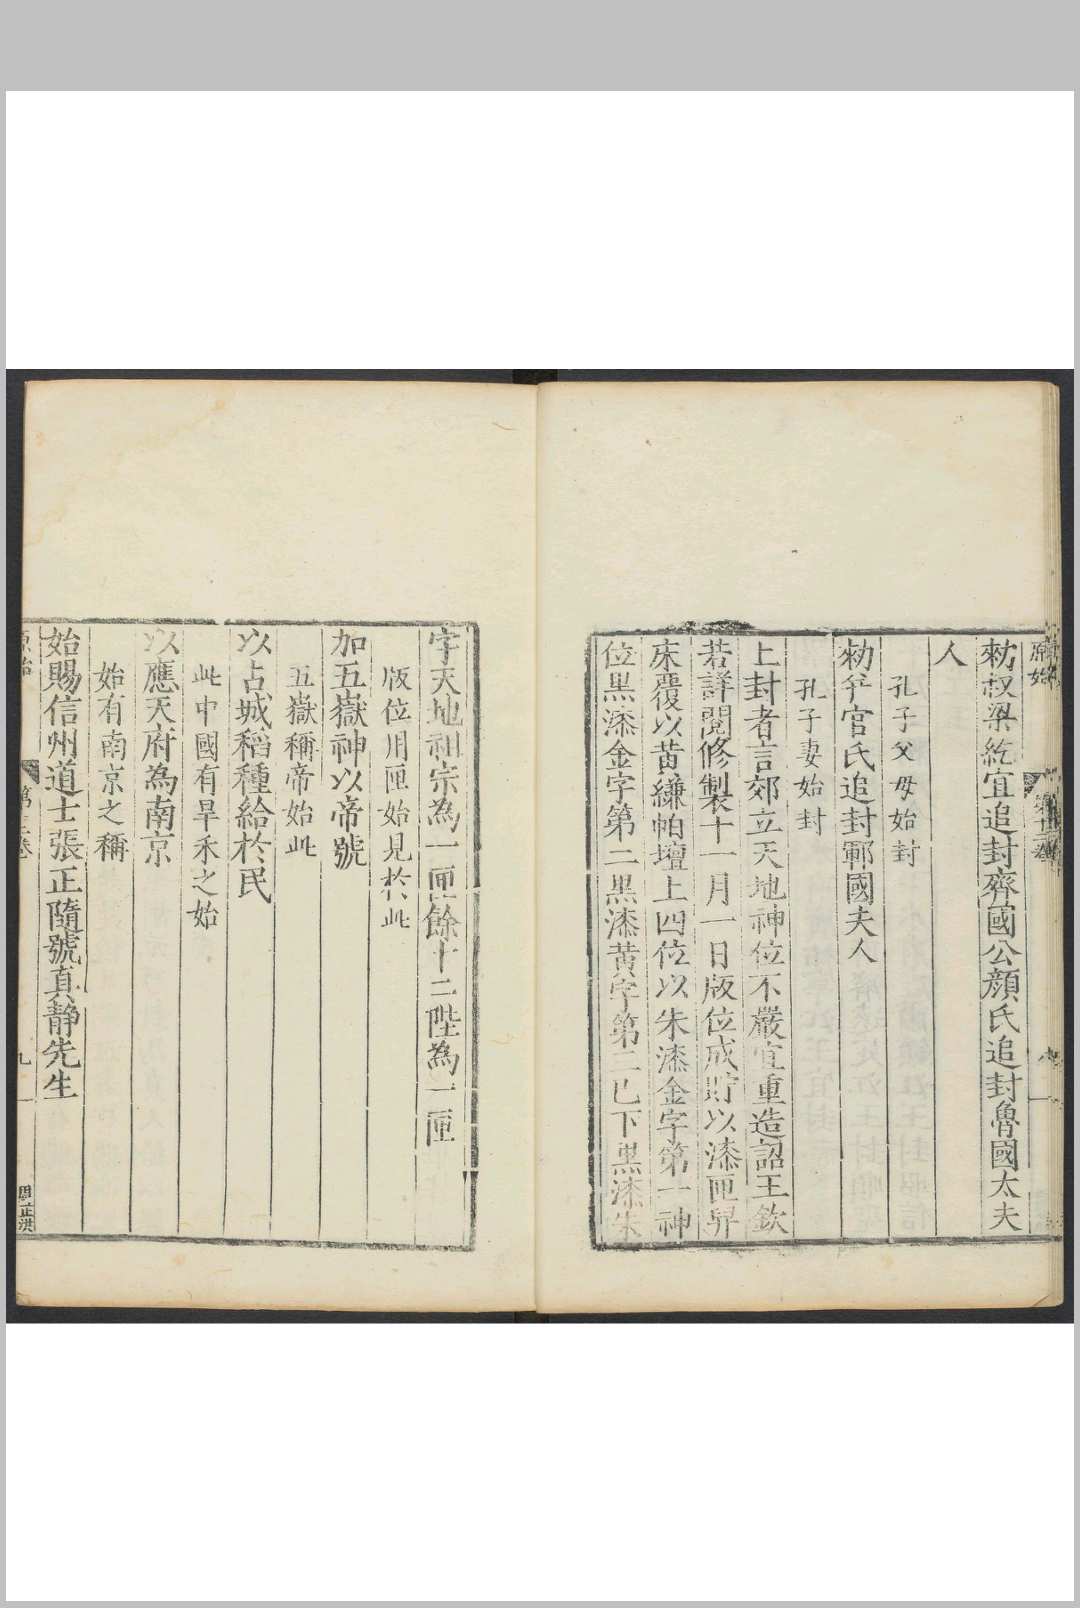 原始
敕叔梁紇宜追封齊國公顔氏追封魯國太夫
人
孔子父母始封
敕亓官氏追封鄆國夫人
孔子妻始封
上封者言郊立天地神位不嚴宜重造詔王欽
若詳閱修製十一月一日版位成貯以漆匣舁
床覆以黄縑帕壇上四位以朱漆金字第一神
位黒漆金字第二黒漆黄字第三已下黒漆朱
字天地祖宗為一匣餘十二陛為一匣
版位用匣始見於此
加五嶽神以帝號
五嶽稱帝始此
以占城稻種給於民
此中國有旱禾之始
以應天府為南京
始有南京之稱
始賜信州道士張正隨號真静先生
九